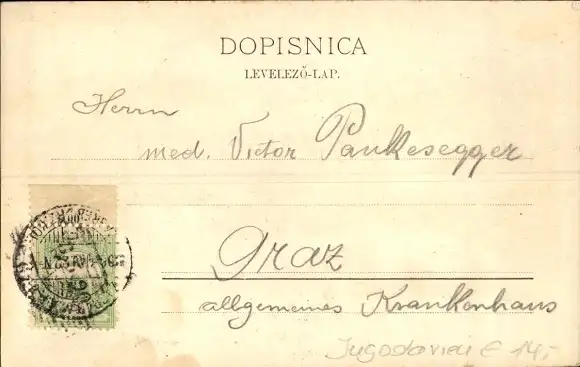 DOPISNICA
LEVELEZŐ-LAP.
Herrn
med. Victor Pankesegger
Graz
allgemeines Krankenhaus
€ 14,-